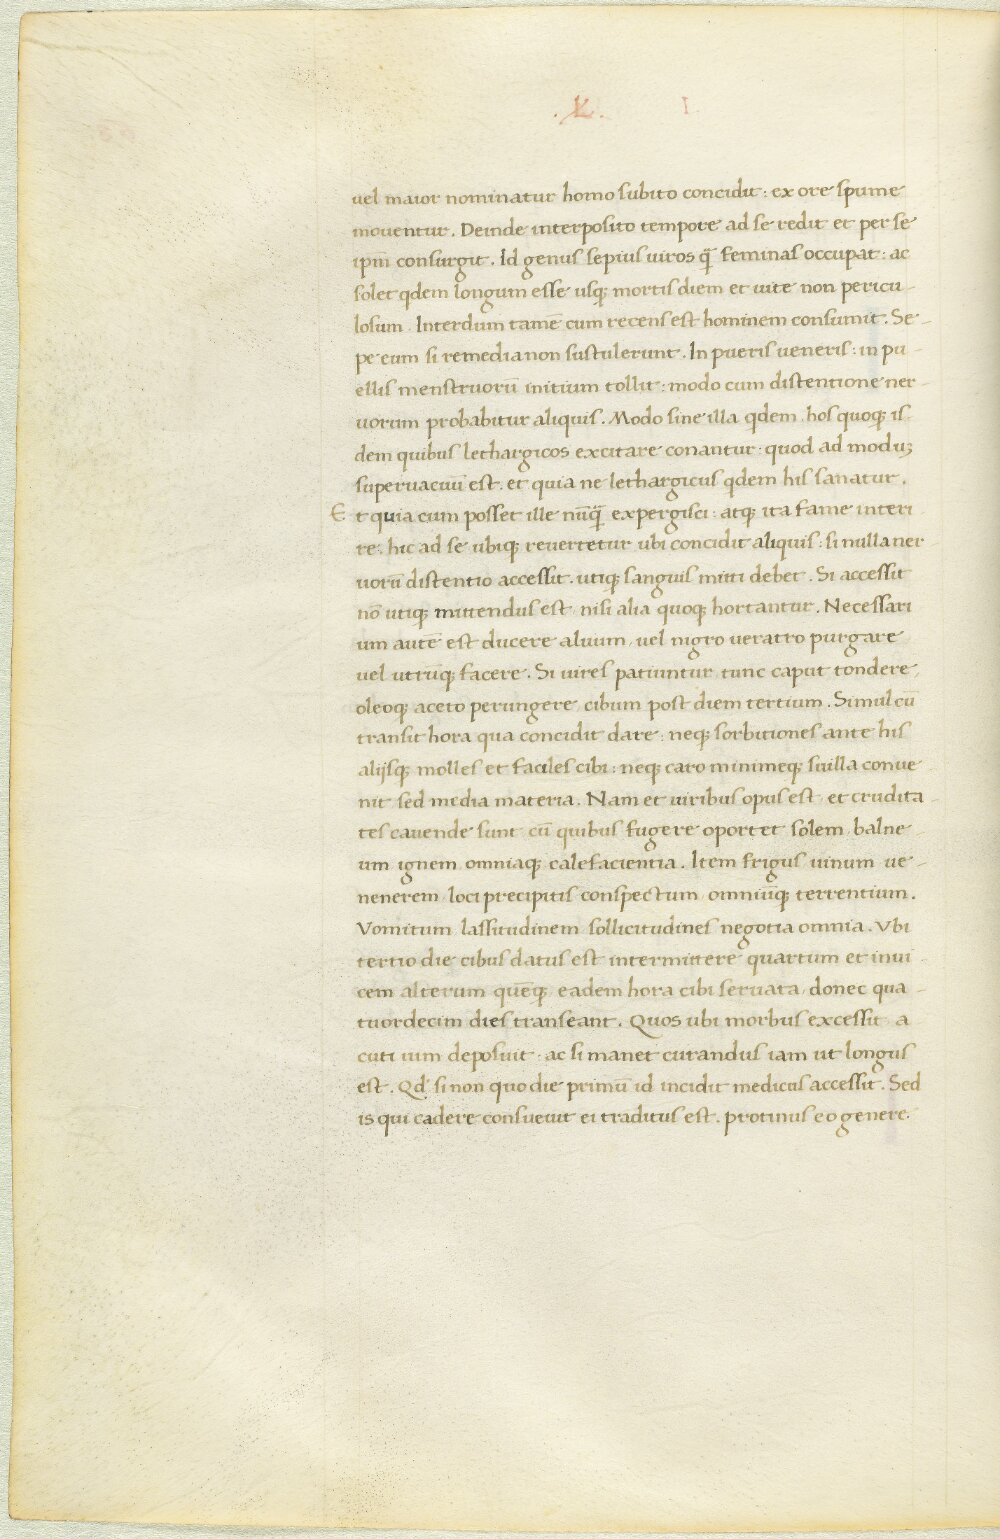 .L.
uel maior nominatur homo subito concidit : ex ore spume
mouentur. Deinde interposito tempore ad se redit et per se
ipm̄ consurgit. Id genus sepius uiros q̄ feminas occupat : ac
solet qdem longum esse usq; mortis diem et uite non pericu-
losum. Interdum tamē cum recens est hominem consumit. Se-
pe eum si remedia non sustulerunt. In pueris ueneris : in pu-
ellis menstruorū initium tollit : modo cum distentione ner-
uorum probabitur aliquis. Modo sine illa qdem, hos quoq; is-
dem quibus lethargicos excitare conantur. quod ad modu;
superuacuū est. et quia ne lethargicus qdem his sanatur.
Et quia cum posset ille nūq̄ expergisci : atq; ita fame interi
re. hic ad se ubiq; reuertetur ubi concidit aliquis : si nulla ner-
uorū distentio accessit. utiq; sanguis mitti debet. Si accessit
nō utiq; mittendus est, nisi alia quoq; hortantur. Necessari
um autē est ducere aluum, uel nigro ueratro purgare
uel utrūq; facere. Si uires patiuntur, tunc caput tondere,
oleoq; aceto perungere, cibum post diem tertium. Simul cū
transit hora qua concidit dare : neq; sorbitiones ante his
alijsq; molles et faciles cibi : neq; caro minimeq; suilla conue
nit sed media materia. Nam et uiribus opus est, et crudita-
tes cauende sunt, cū quibus fugere oportet solem, balne-
um ignem, omniaq; calefacientia. Item frigus uinum ue-
nenerem, loci precipitis conspectum, omniūq; terrentium.
Vomitum, lassitudinem sollicitudines negotia omnia. Vbi
tertio die cibus datus est intermittere quartum et inui-
cem alterum quēq; eadem hora cibi seruata, donec qua-
tuordecim dies transeant. Quos ubi morbus excessit, a
cuti uim deposuit. ac si manet curandus iam ut longus
est. Qd̄ si non quo die primū id incidit medicus accessit. Sed
is qui cadere consueuit ei traditus est. protinus eo genere.